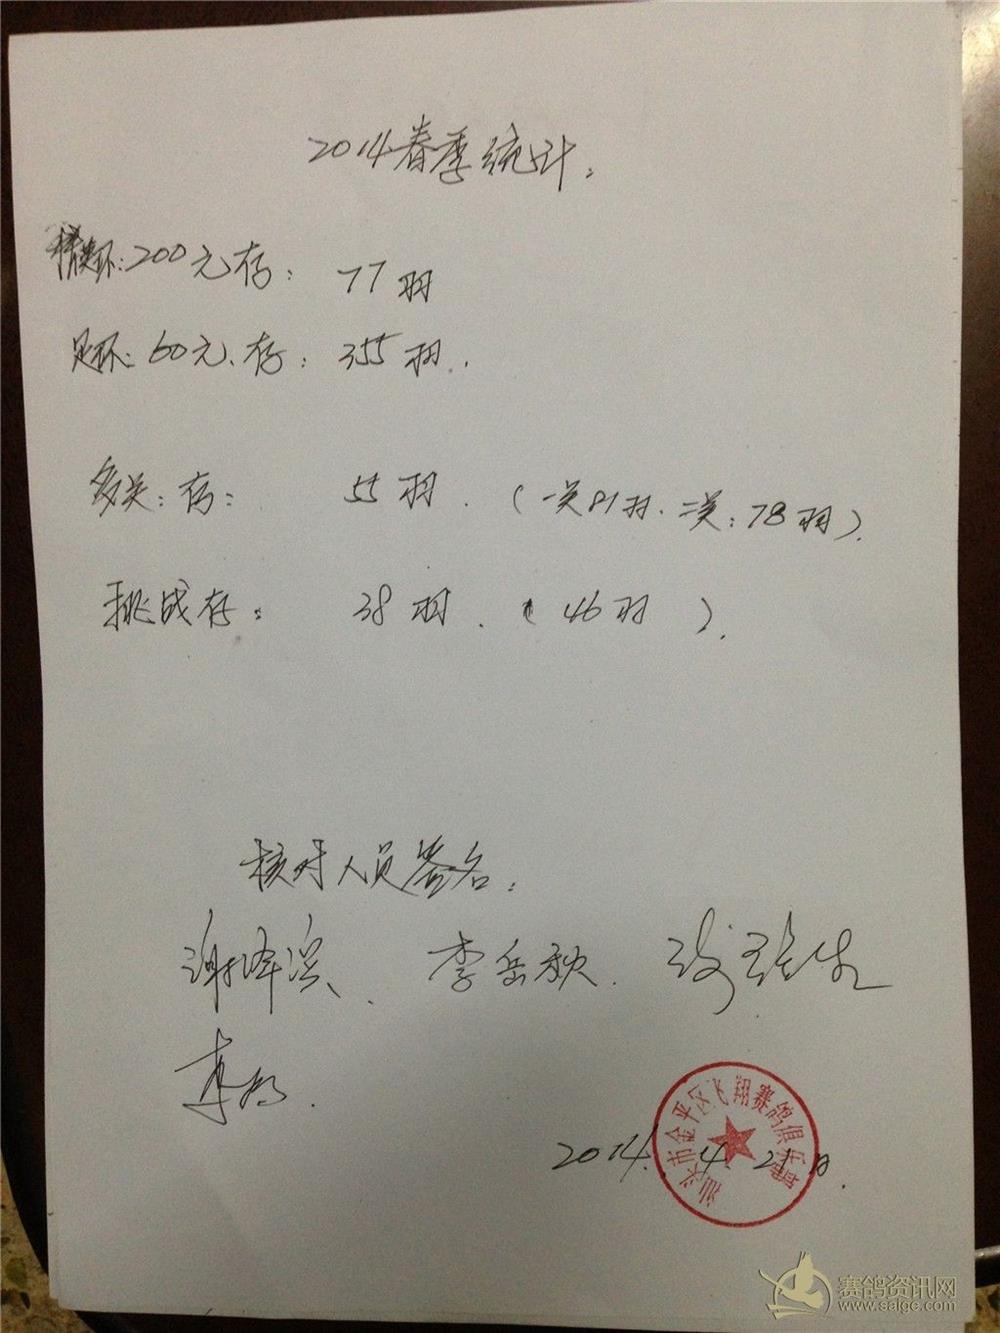 2014春季统计:
环:200元存: 77羽
足环:60元、存:355羽.
多关:存: 55羽.(一关81羽.二关:78羽).
挑战存: 38羽.(46羽).
核对人员签名:
谢泽滨、李岳秋.
李
2014.4.21日.
汕头市金平区飞翔赛鸽俱乐部
赛鸽资讯网
www.saige.com